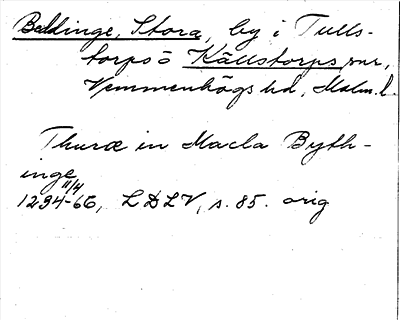 Beddinge, Stora, by i Tulls-
torps o Källstorps snr,
Vemmenhögs hd, Malm. l.
Thuræ in Macla Byth-
inge
11/4
1294-66, LDLV, s. 85. orig